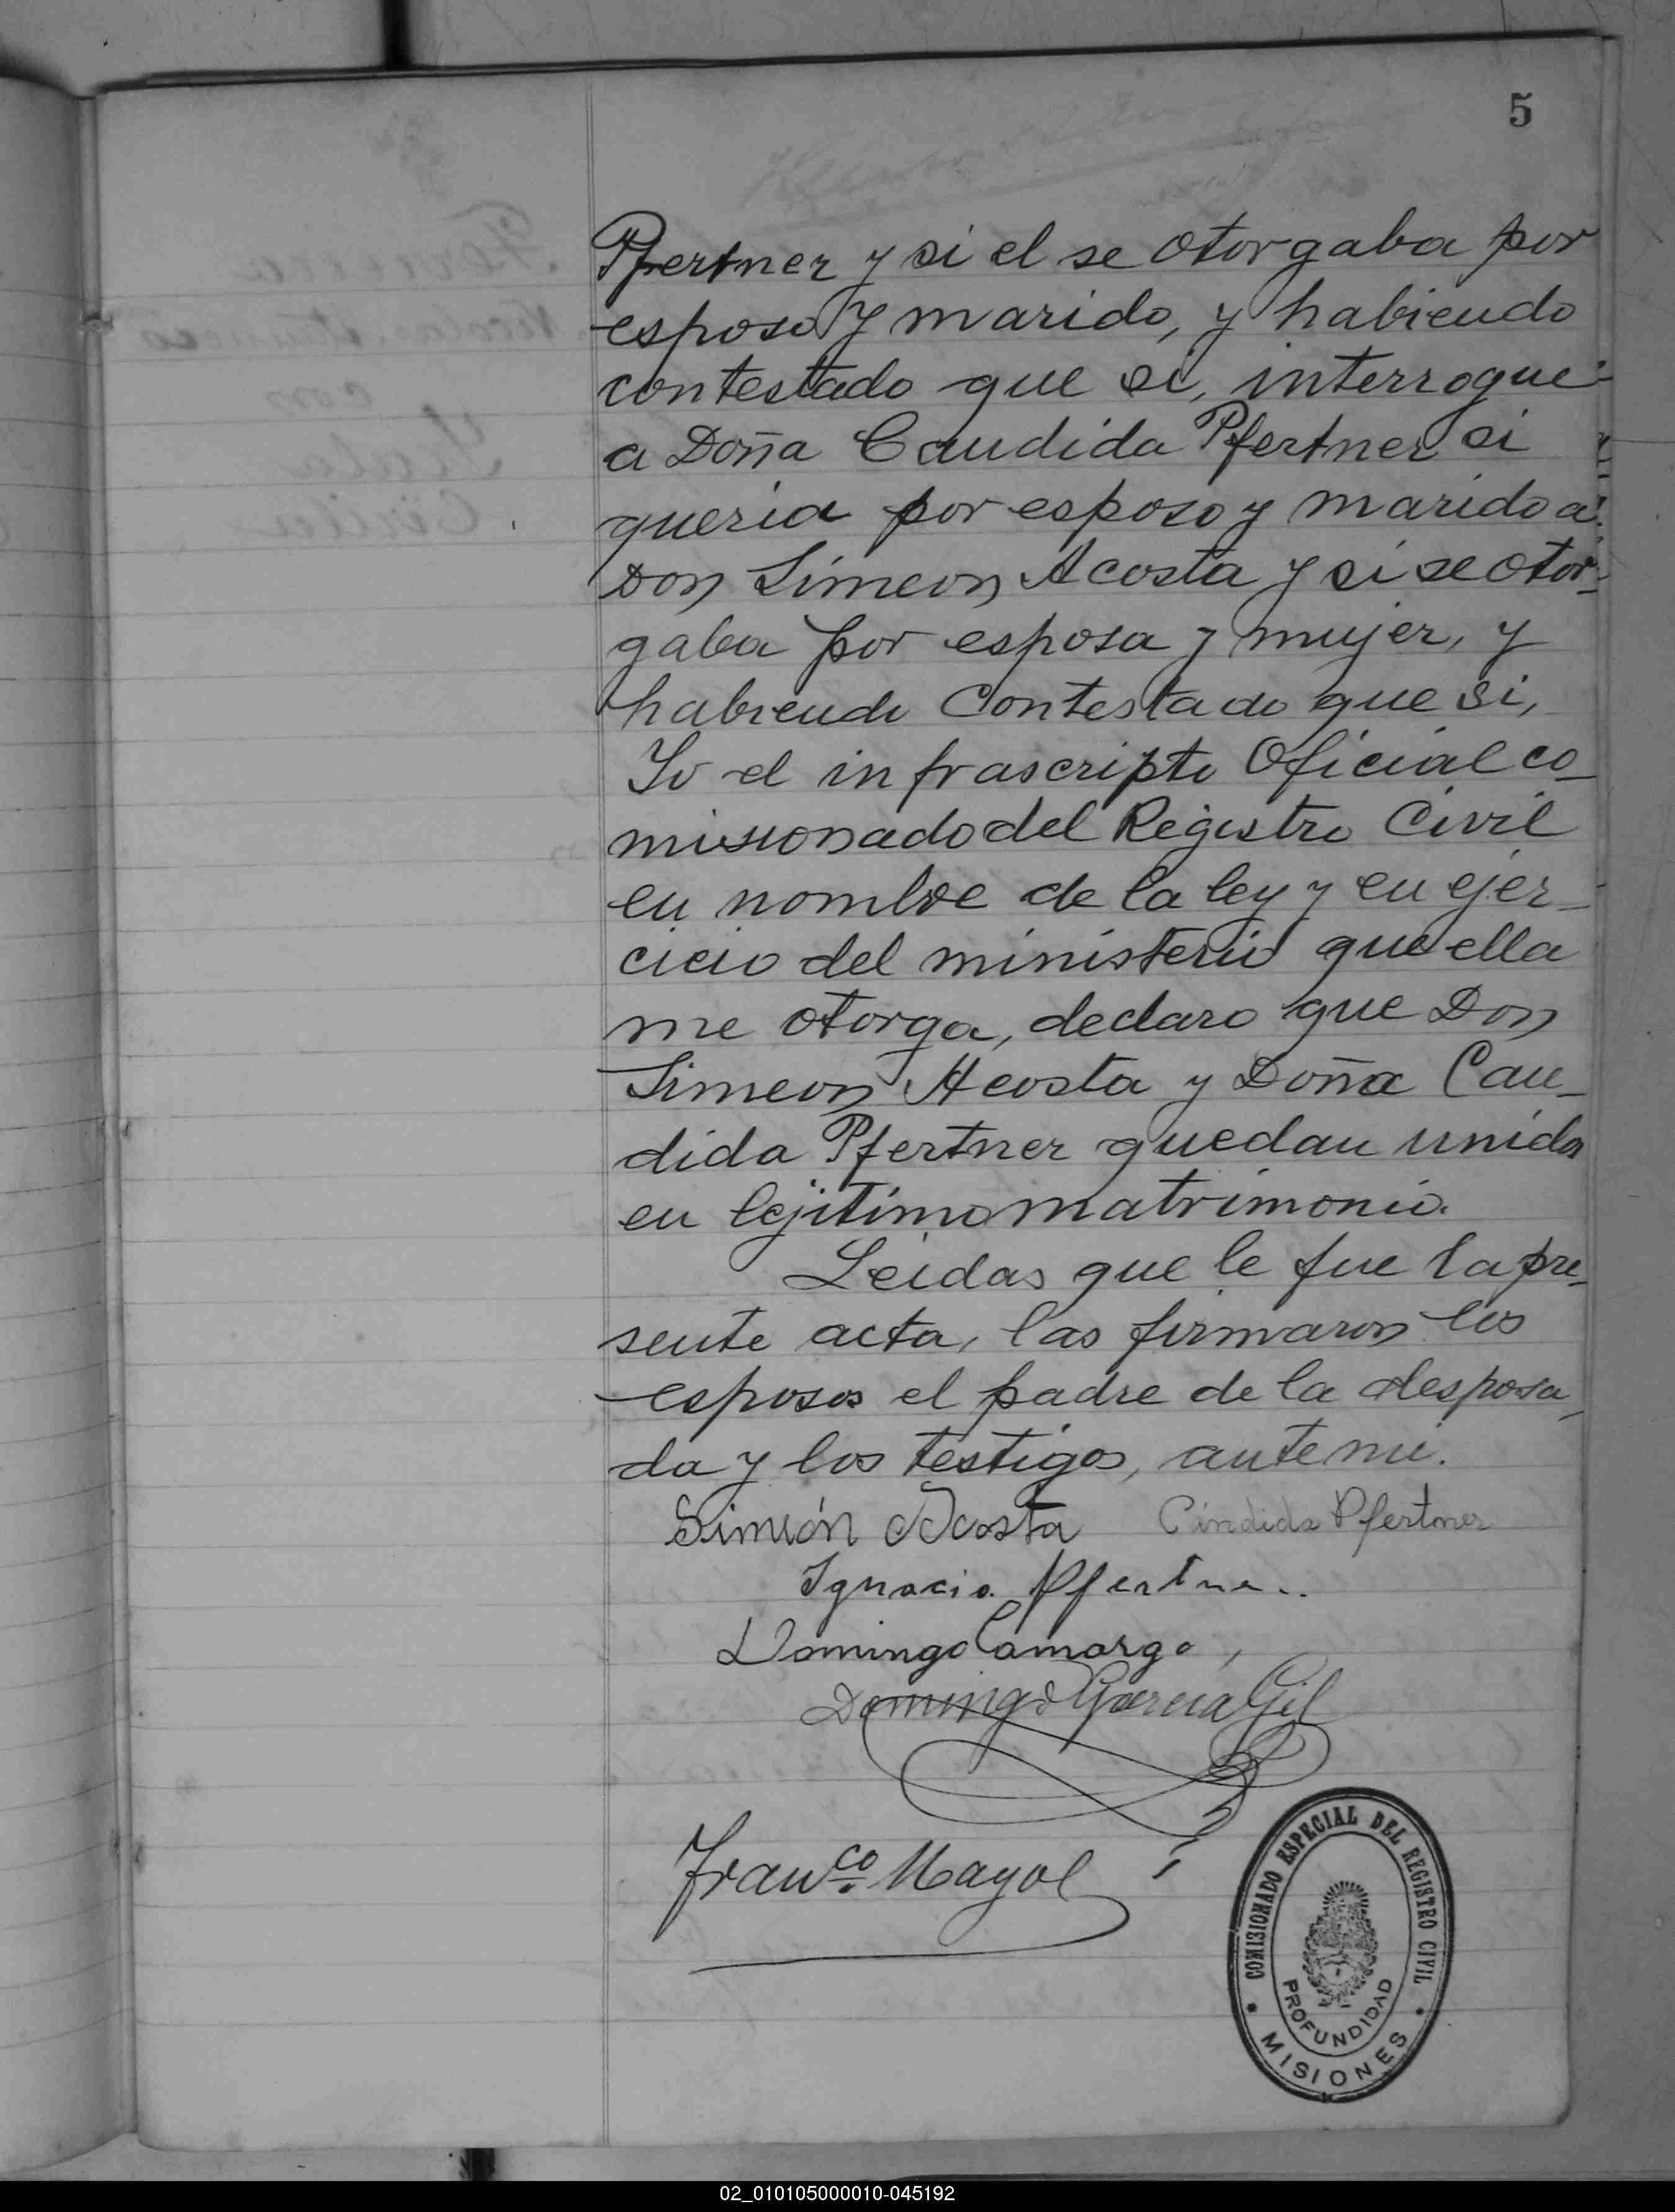 5
Pfertner y si el se otorgaba por
esposo y marido, y habiendo
contestado que si, interrogue
a Doña Candida Pfertner si
queria por esposo y marido a
Don Simeon Acosta y si se otor-
gaba por esposa y mujer, y
habiendo contestado que si,
Yo el infrascripto Oficial co-
misionado del Registro Civil
en nombre de la ley y en ejer-
cicio del ministerio que ella
me otorga, declaro que Don
Simeon Acosta y Doña Can-
dida Pfertner quedan unidos
en lejitimo matrimonio.
Leidas que le fue la pre-
sente acta, las firmaron los
esposos el padre de la desposa-
da y los testigos, ante mi.
Simeón Acosta Cándida Pfertner
Ignacio Pfertner
Domingo Camargo
Domingo Garcia Gil
Franco. Mayol
COMISIONADO ESPECIAL DEL REGISTRO CIVIL
PROFUNDIDAD
* MISIONES *
02_010105000010-045192